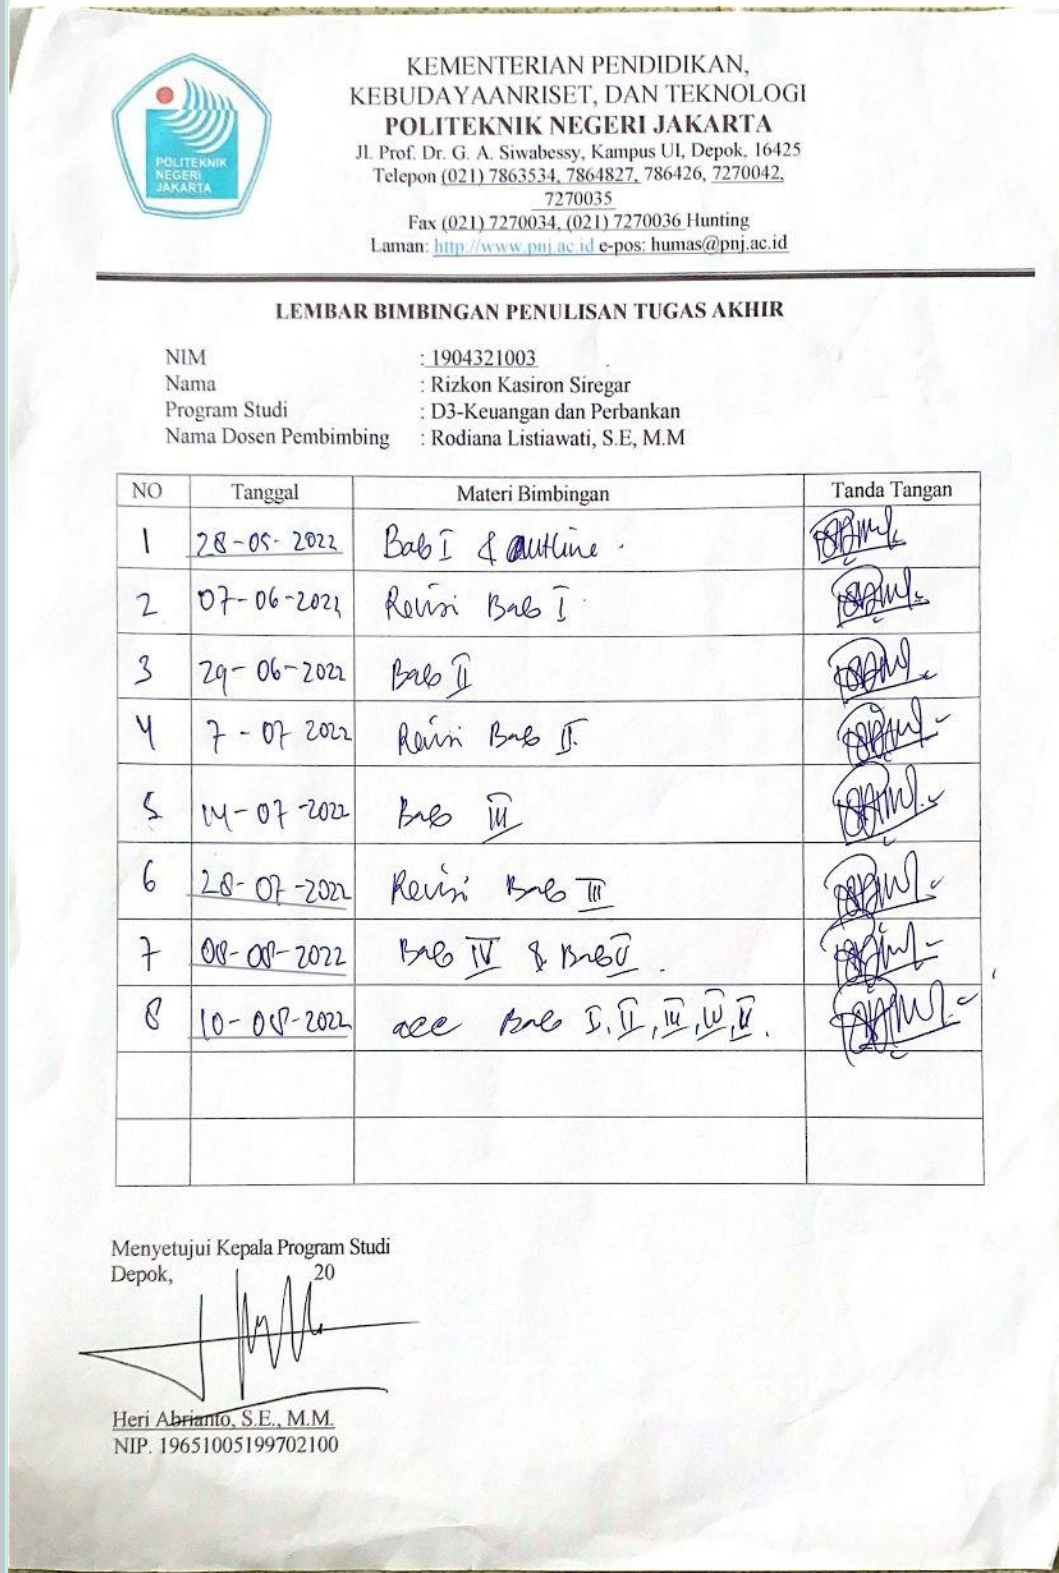 POLITEKNIK
NEGERI
JAKARTA
KEMENTERIAN PENDIDIKAN,
KEBUDAYAANRISET, DAN TEKNOLOGI
POLITEKNIK NEGERI JAKARTA
Jl. Prof. Dr. G. A. Siwabessy, Kampus UI, Depok, 16425
Telepon (021) 7863534, 7864827, 786426, 7270042,
7270035
Fax (021) 7270034, (021) 7270036 Hunting
Laman: http://www.pnj.ac.id e-pos: humas@pnj.ac.id
LEMBAR BIMBINGAN PENULISAN TUGAS AKHIR
NIM : 1904321003
Nama : Rizkon Kasiron Siregar
Program Studi : D3-Keuangan dan Perbankan
Nama Dosen Pembimbing : Rodiana Listiawati, S.E, M.M
NO Tanggal Materi Bimbingan Tanda Tangan
1 28-05-2022 Bab I & Outline.
2 07-06-2022 Revisi Bab I
3 29-06-2022 Bab II
4 7-07 2022 Revisi Bab II.
5 14-07-2022 Bab III
6 28-07-2022 Revisi Bab III
7 08-08-2022 Bab IV & Bab V.
8 10-08-2022 acc Bab I, II, III, IV, V.
Menyetujui Kepala Program Studi
Depok, 20
Heri Abrianto, S.E., M.M.
NIP. 19651005199702100